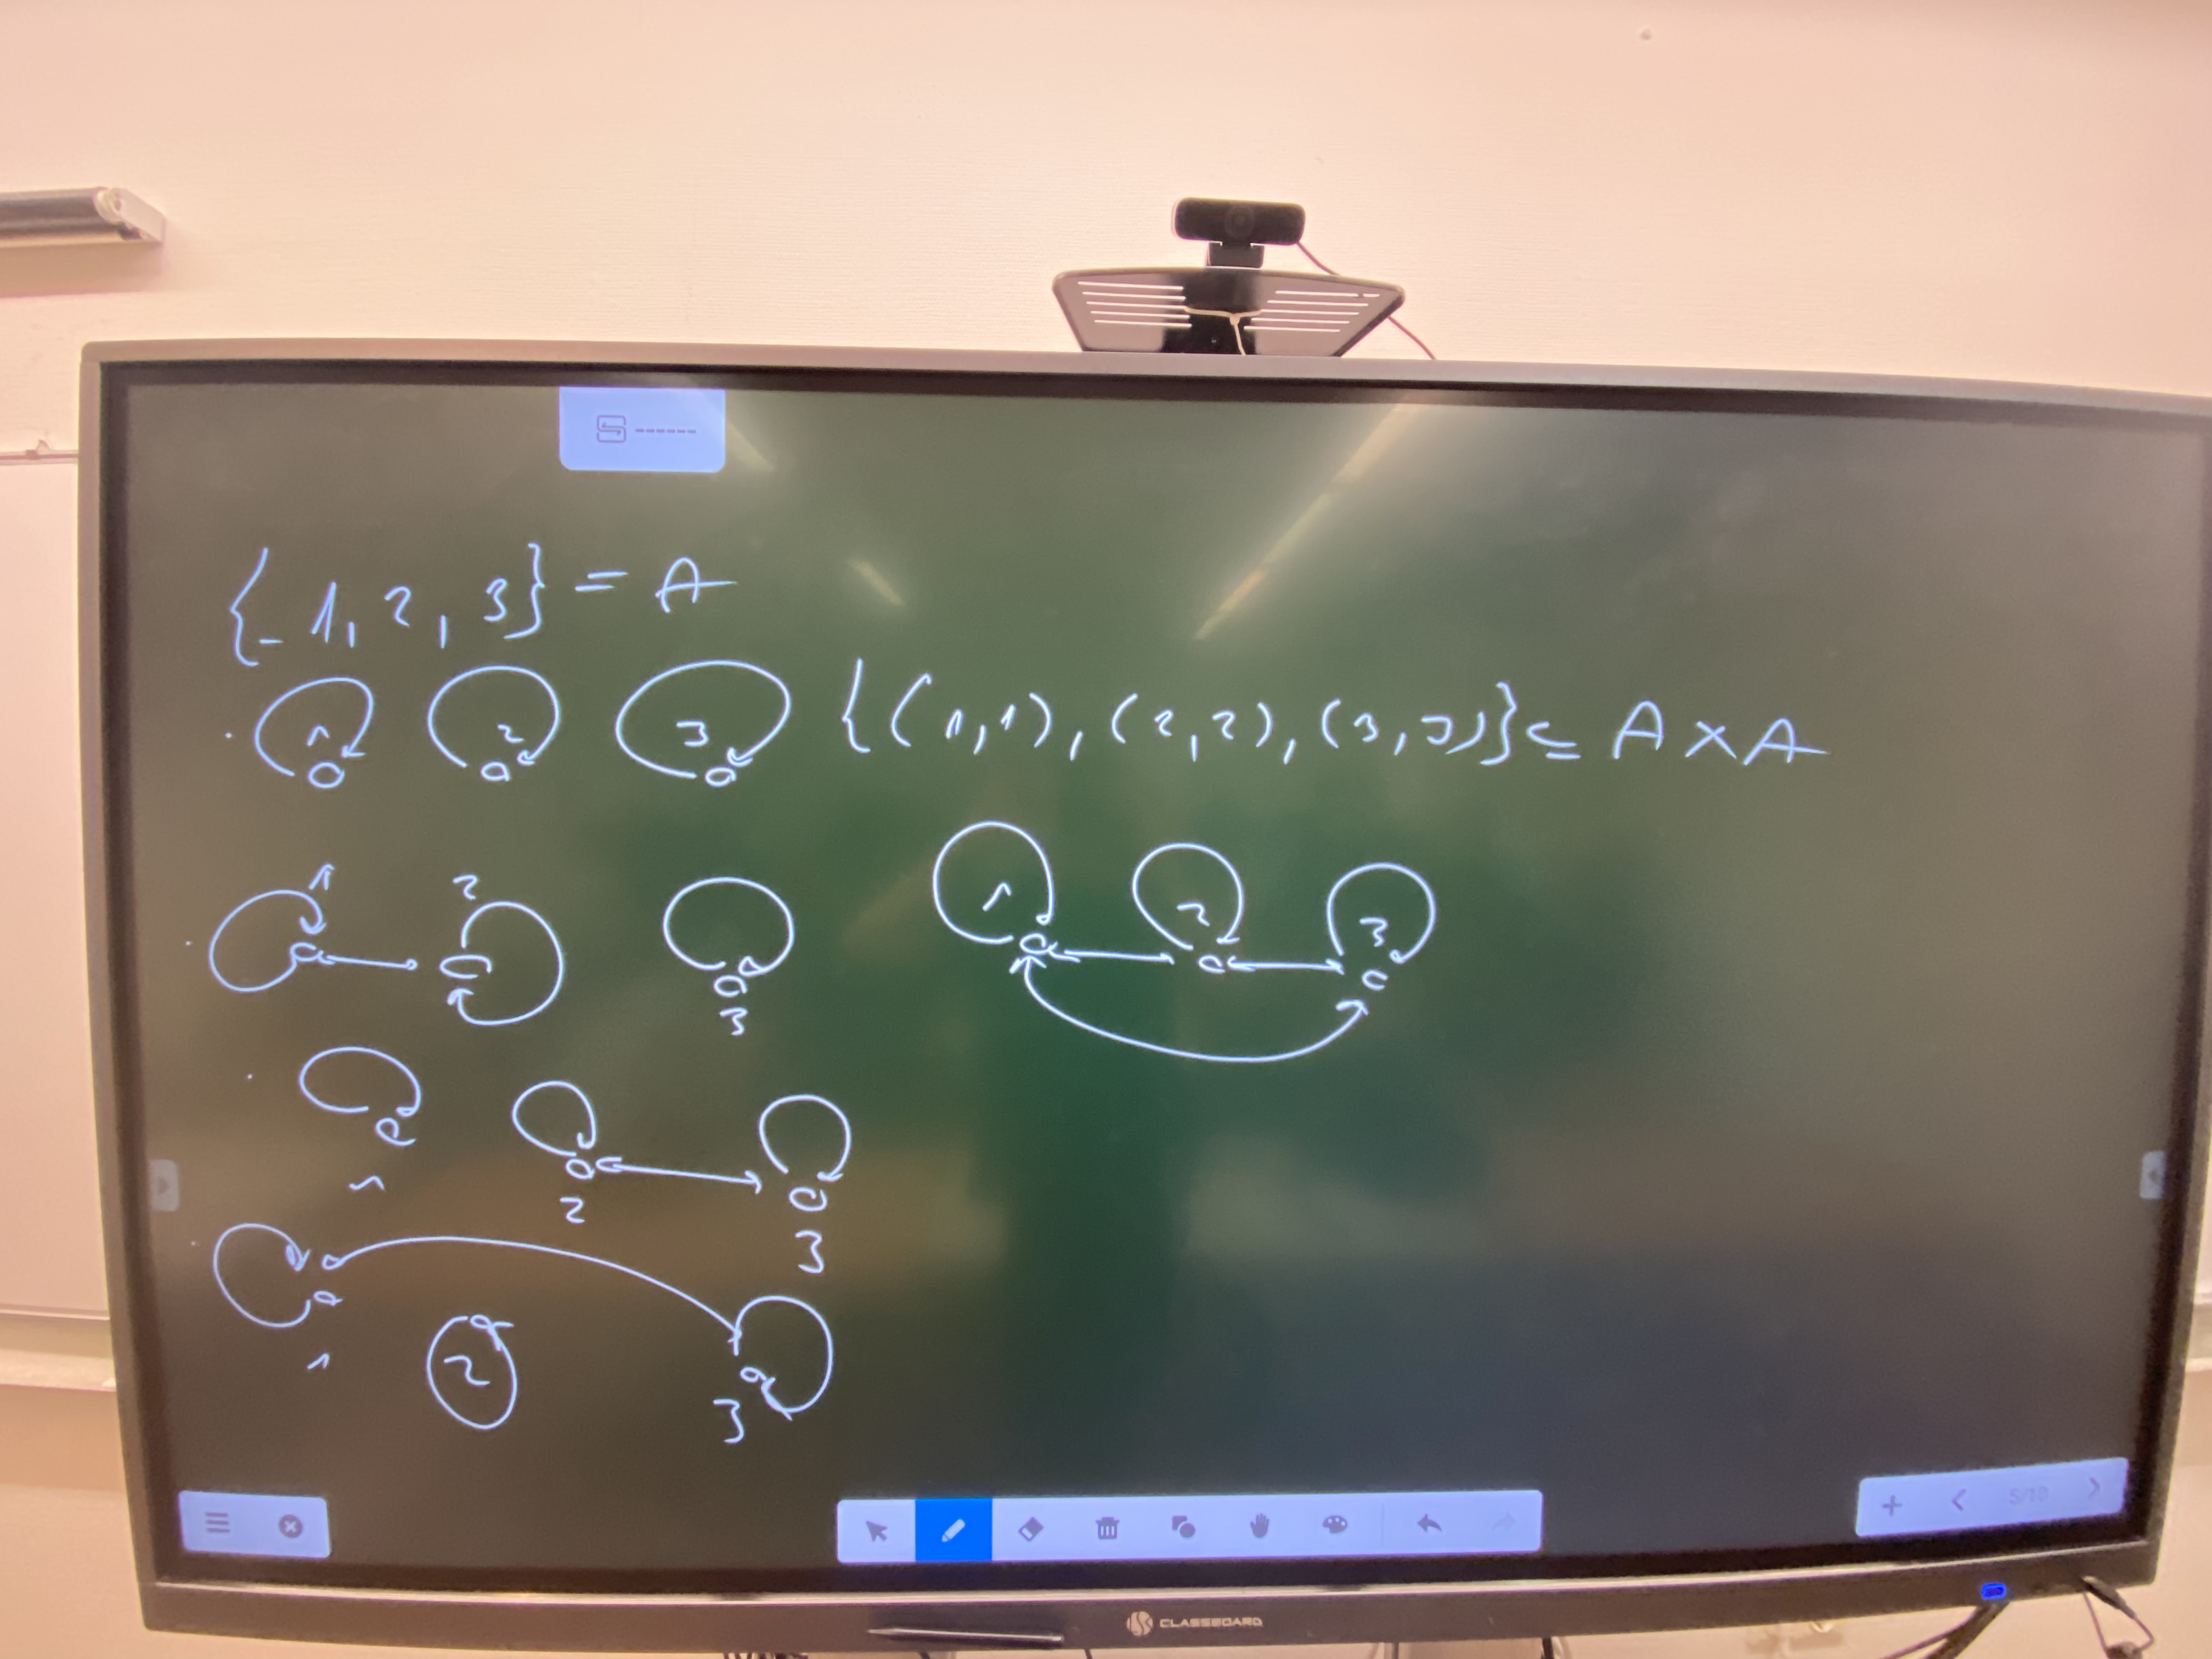 {1, 2, 3} = A
1 2 3 {(1,1), (2,2), (3,3)} ⊆ A × A
1 2 3
1 2 3
1 2 3
1 2 3
5/10
CLASSBOARD